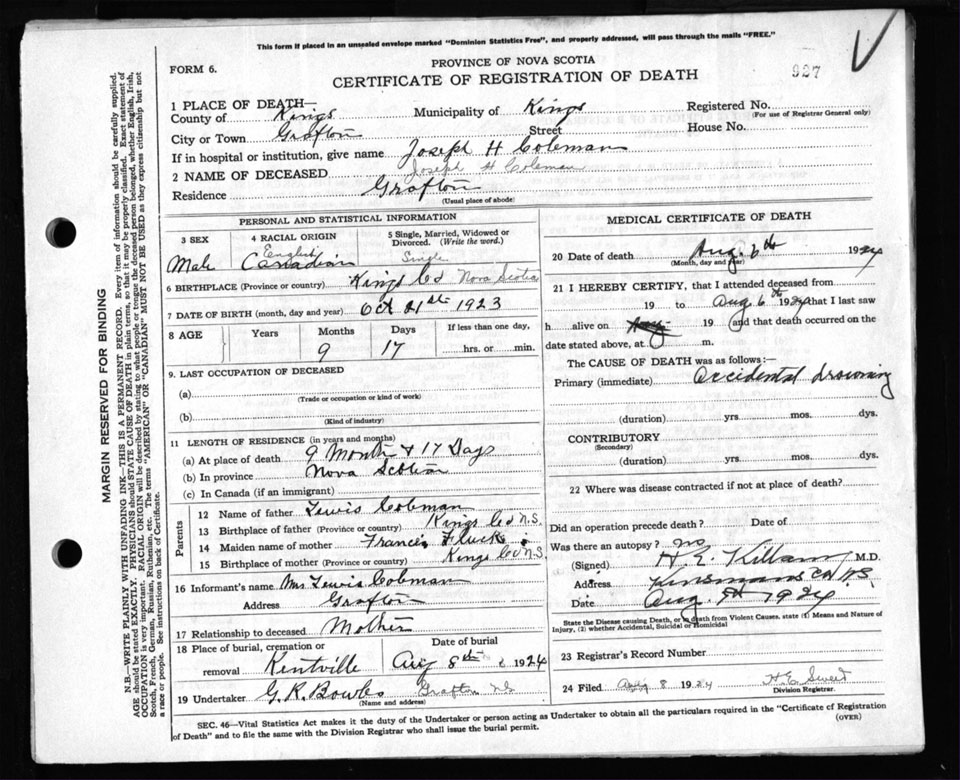 This form if placed in an unsealed envelope marked "Dominion Statistics Free", and properly addressed, will pass through the mails "FREE."
FORM 6.
PROVINCE OF NOVA SCOTIA
CERTIFICATE OF REGISTRATION OF DEATH
927
1 PLACE OF DEATH—
County of Kings Municipality of Kings Registered No.
(For use of Registrar General only)
City or Town Grafton Street House No.
If in hospital or institution, give name Joseph H Coleman
2 NAME OF DECEASED Joseph H Coleman
Residence Grafton
(Usual place of abode)
MARGIN RESERVED FOR BINDING
N.B.—WRITE PLAINLY WITH UNFADING INK—THIS IS A PERMANENT RECORD. Every item of information should be carefully supplied.
AGE should be stated EXACTLY. PHYSICIANS should STATE CAUSE OF DEATH in plain terms, so that it may be properly classified. Exact statement of
OCCUPATION is very important. RACIAL ORIGIN will be described by stating to what people or tongue the deceased person belonged, whether English, Irish,
Scotch, French, German, Russian, Ruthenian, etc. The terms "AMERICAN" OR "CANADIAN" MUST NOT BE USED as they express citizenship but not
a race or people. See instructions on back of Certificate.
PERSONAL AND STATISTICAL INFORMATION
3 SEX 4 RACIAL ORIGIN 5 Single, Married, Widowed or
Divorced. (Write the word.)
English
Male Canadian Single
6 BIRTHPLACE (Province or country) Kings Co Nova Scotia
7 DATE OF BIRTH (month, day and year) Oct 21st 1923
8 AGE Years Months Days If less than one day,
9 17 hrs. or min.
9. LAST OCCUPATION OF DECEASED
(a)
(Trade or occupation or kind of work)
(b)
(Kind of industry)
11 LENGTH OF RESIDENCE (in years and months)
(a) At place of death 9 Month & 17 Days
(b) In province Nova Scotia
(c) In Canada (if an immigrant)
Parents
12 Name of father Lewis Coleman
13 Birthplace of father (Province or country) Kings Co N.S.
14 Maiden name of mother Francis Fluck
15 Birthplace of mother (Province or country) Kings Co N.S
16 Informant's name Mrs Lewis Coleman
Address Grafton
17 Relationship to deceased Mother
18 Place of burial, cremation or Date of burial
removal Kentville Aug 8th 1924
19 Undertaker G. R. Bowles Grafton NS
(Name and address)
MEDICAL CERTIFICATE OF DEATH
20 Date of death Aug. 6th 1924
(Month, day and year)
21 I HEREBY CERTIFY, that I attended deceased from
19 to Aug 6th 1924 that I last saw
h alive on 19 and that death occurred on
date stated above, at m.
The CAUSE OF DEATH was as follows:—
Primary (immediate) Accidental drowning
(duration) yrs. mos. dys.
CONTRIBUTORY
(Secondary)
(duration) yrs. mos. dys.
22 Where was disease contracted if not at place of death?
Did an operation precede death? Date of
Was there an autopsy? no
(Signed) H. E. Killam M.D.
Address Kinsmans Co N.S.
Date Aug. 8th 1924
State the Disease causing Death, or in death from Violent Causes, state (1) Means and Nature of
Injury, (2) whether Accidental, Suicidal or Homicidal
23 Registrar's Record Number
24 Filed Aug 8 1924
Division Registrar.
SEC. 46—Vital Statistics Act makes it the duty of the Undertaker or person acting as Undertaker to obtain all the particulars required in the "Certificate of Registration
of Death" and to file the same with the Division Registrar who shall issue the burial permit.
(OVER)